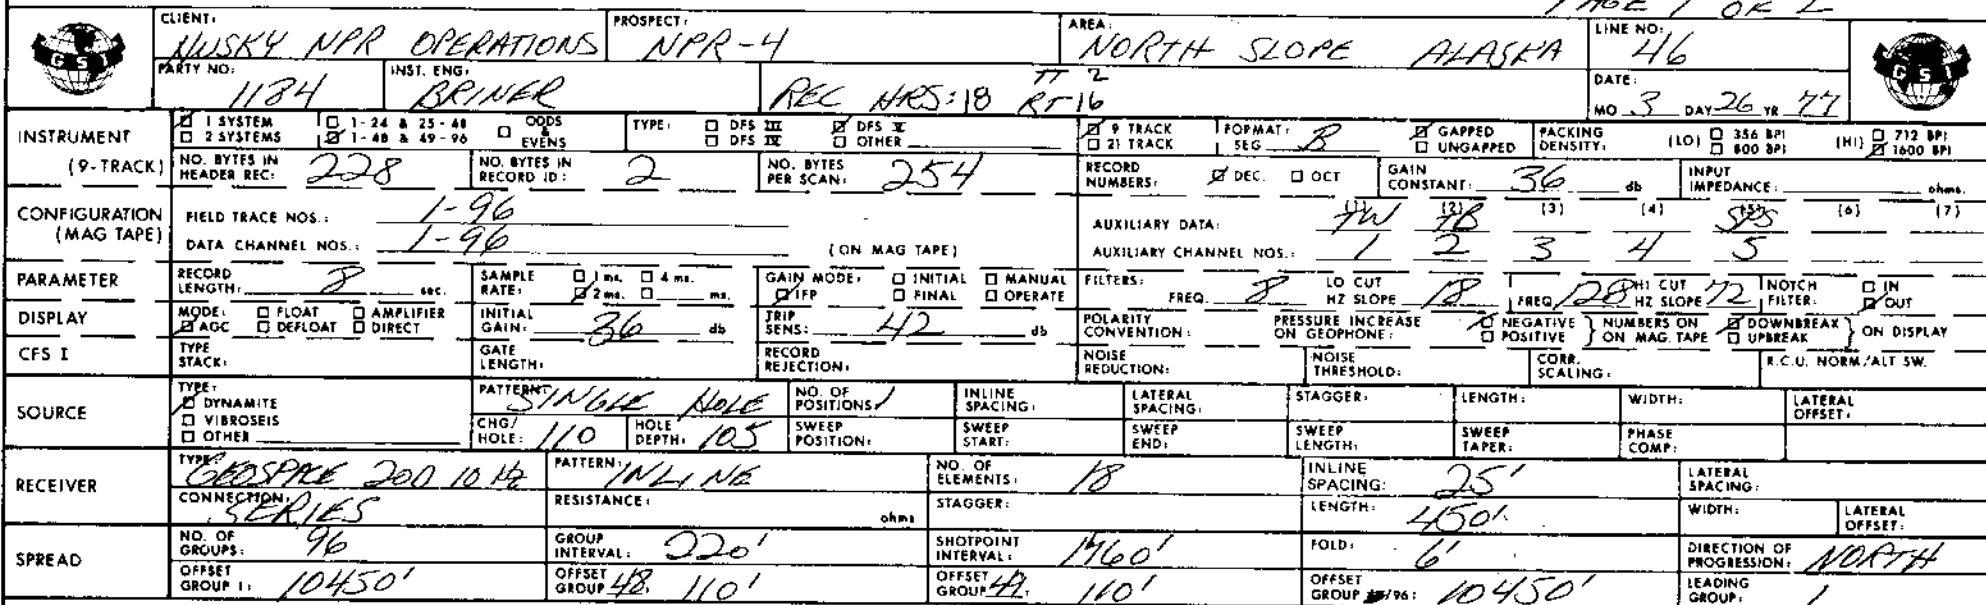 PAGE 1 OF 2
CLIENT: NUSKY NPR OPERATIONS PROSPECT: NPR-4 AREA: NORTH SLOPE ALASKA LINE NO: 46
GSI GSI
PARTY NO: 1184 INST. ENG. BRINER REC HRS: 18 TT 2 RT-16 DATE: MO 3 DAY 26 YR 77
INSTRUMENT (9-TRACK) ☑ 1 SYSTEM ☐ 2 SYSTEMS ☐ 1-24 & 25-48 ☑ 1-48 & 49-96 ☐ ODDS & EVENS TYPE: ☐ DFS III ☐ DFS IV ☑ DFS V ☐ OTHER ☑ 9 TRACK ☐ 21 TRACK FORMAT: SEG B ☑ GAPPED ☐ UNGAPPED PACKING DENSITY: (LO) ☐ 356 BPI ☐ 800 BPI (HI) ☐ 712 BPI ☑ 1600 BPI
NO. BYTES IN HEADER REC: 228 NO. BYTES IN RECORD ID: 2 NO. BYTES PER SCAN: 254 RECORD NUMBERS: ☑ DEC. ☐ OCT GAIN CONSTANT: 36 db INPUT IMPEDANCE: ohms.
CONFIGURATION (MAG TAPE) FIELD TRACE NOS.: 1-96 AUXILIARY DATA: (1) TW (2) TB (3) (4) (5) SPS (6) (7)
DATA CHANNEL NOS.: 1-96 (ON MAG TAPE) AUXILIARY CHANNEL NOS.: 1 2 3 4 5
PARAMETER RECORD LENGTH: 8 sec. SAMPLE RATE: ☐ 1 ms. ☐ 4 ms. ☑ 2 ms. ☐ ms. GAIN MODE: ☑ IFP ☐ INITIAL ☐ FINAL ☐ MANUAL ☐ OPERATE FILTERS: FREQ. 8 LO CUT HZ SLOPE 18 FREQ 128 HI CUT HZ SLOPE 72 NOTCH FILTER: ☐ IN ☑ OUT
DISPLAY MODE: ☐ FLOAT ☐ AMPLIFIER ☑ AGC ☐ DEFLOAT ☐ DIRECT INITIAL GAIN: 36 db TRIP SENS: 42 db POLARITY CONVENTION: PRESSURE INCREASE ON GEOPHONE: ☑ NEGATIVE ☐ POSITIVE } NUMBERS ON MAG. TAPE ☑ DOWNBREAK ☐ UPBREAK } ON DISPLAY
CFS I TYPE STACK: GATE LENGTH: RECORD REJECTION: NOISE REDUCTION: NOISE THRESHOLD: CORR. SCALING: R.C.U. NORM/ALT SW.
SOURCE TYPE: ☑ DYNAMITE ☐ VIBROSEIS ☐ OTHER PATTERN: SINGLE HOLE NO. OF POSITIONS 1 INLINE SPACING: LATERAL SPACING: STAGGER: LENGTH: WIDTH: LATERAL OFFSET:
CHG/HOLE: 110 HOLE DEPTH: 105 SWEEP POSITION: SWEEP START: SWEEP END: SWEEP LENGTH: SWEEP TAPER: PHASE COMP:
RECEIVER TYPE GEOSPACE 20D 10 Hz PATTERN: INLINE NO. OF ELEMENTS: 18 INLINE SPACING: 25' LATERAL SPACING:
CONNECTION: SERIES RESISTANCE: ohms STAGGER: LENGTH: 450' WIDTH: LATERAL OFFSET:
SPREAD NO. OF GROUPS: 96 GROUP INTERVAL: 220' SHOTPOINT INTERVAL: 1760' FOLD: 6 DIRECTION OF PROGRESSION: NORTH
OFFSET GROUP 1: 10450' OFFSET GROUP 48: 110' OFFSET GROUP 49: 110' OFFSET GROUP /96: 10450' LEADING GROUP: 1